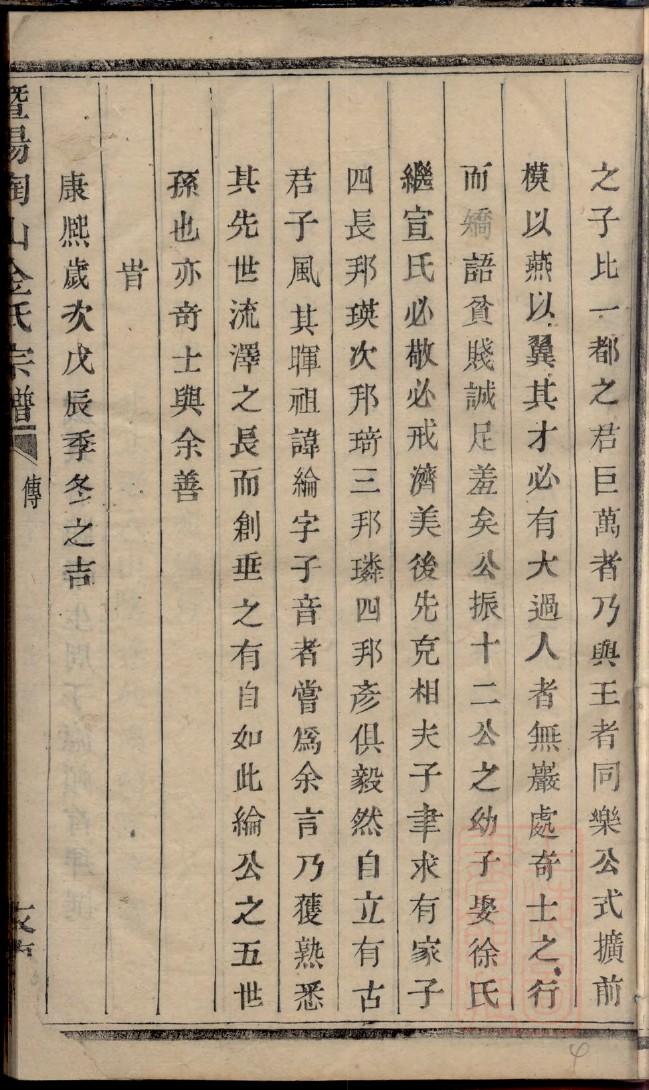 之子比一都之君巨萬者乃與王者同樂公式擴前
模以燕以翼其才必有大過人者無巖處奇士之行
而嬌語貧賤誠足羞矣公振十二公之幼子娶徐氏
繼宣氏必敬必戒濟美後先克相夫子聿求有家子
四長邦瑛次邦琦三邦璘四邦彥俱毅然自立有古
君子風其暉祖諱綸字子音者嘗爲余言乃獲熟悉
其先世流澤之長而創垂之有自如此綸公之五世
孫也亦奇士與余善
旹
康熙歲次戊辰季冬之吉
暨陽陶山金氏宗譜 傳